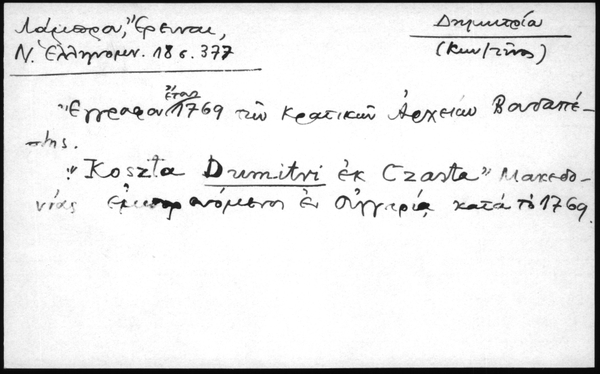 Λάμπρου, Ἔρευναι,
Ν. Ἑλληνομν. 18 σ. 377
Δημητρία
(Κων/τῖνος)
"Ἔγγραφα ἔτους 1769 τῶν Κρατικῶν Ἀρχείων Βουδαπέ-
στης.
"Koszta Dumitri ἐκ Czasta" Μακεδο-
νίας ἐμπορευόμενος ἐν Οὑγγαρίᾳ κατὰ τὸ 1769.